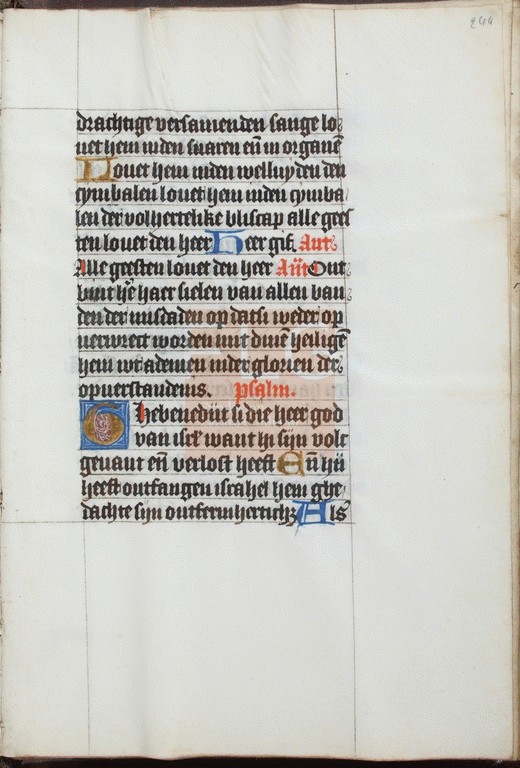 244
drachtige versamenden sange lo
uet hem inden snaren en̄ in organē
Louet hem inden welluydenden
cymbalen louet hem inden cymba
len der volhertelike bliscap alle gees
ten louet den heer Heer gif. Ant
Alle geesten louet den heer Ant Ont
bint hē haer sielen van allen ban
den der misdaden op datsi weder op
uerwect worden mit dinē heiligē
hem wtademen inder glorien der
opuerstandenis. Psalm.
Ghebenedijt si die heer god
van isrl want hi sijn volc
geuant en̄ verlost heeft En̄ hij
heeft ontfangen israhel hem ghe
dachte sijn ontfermherticht Als